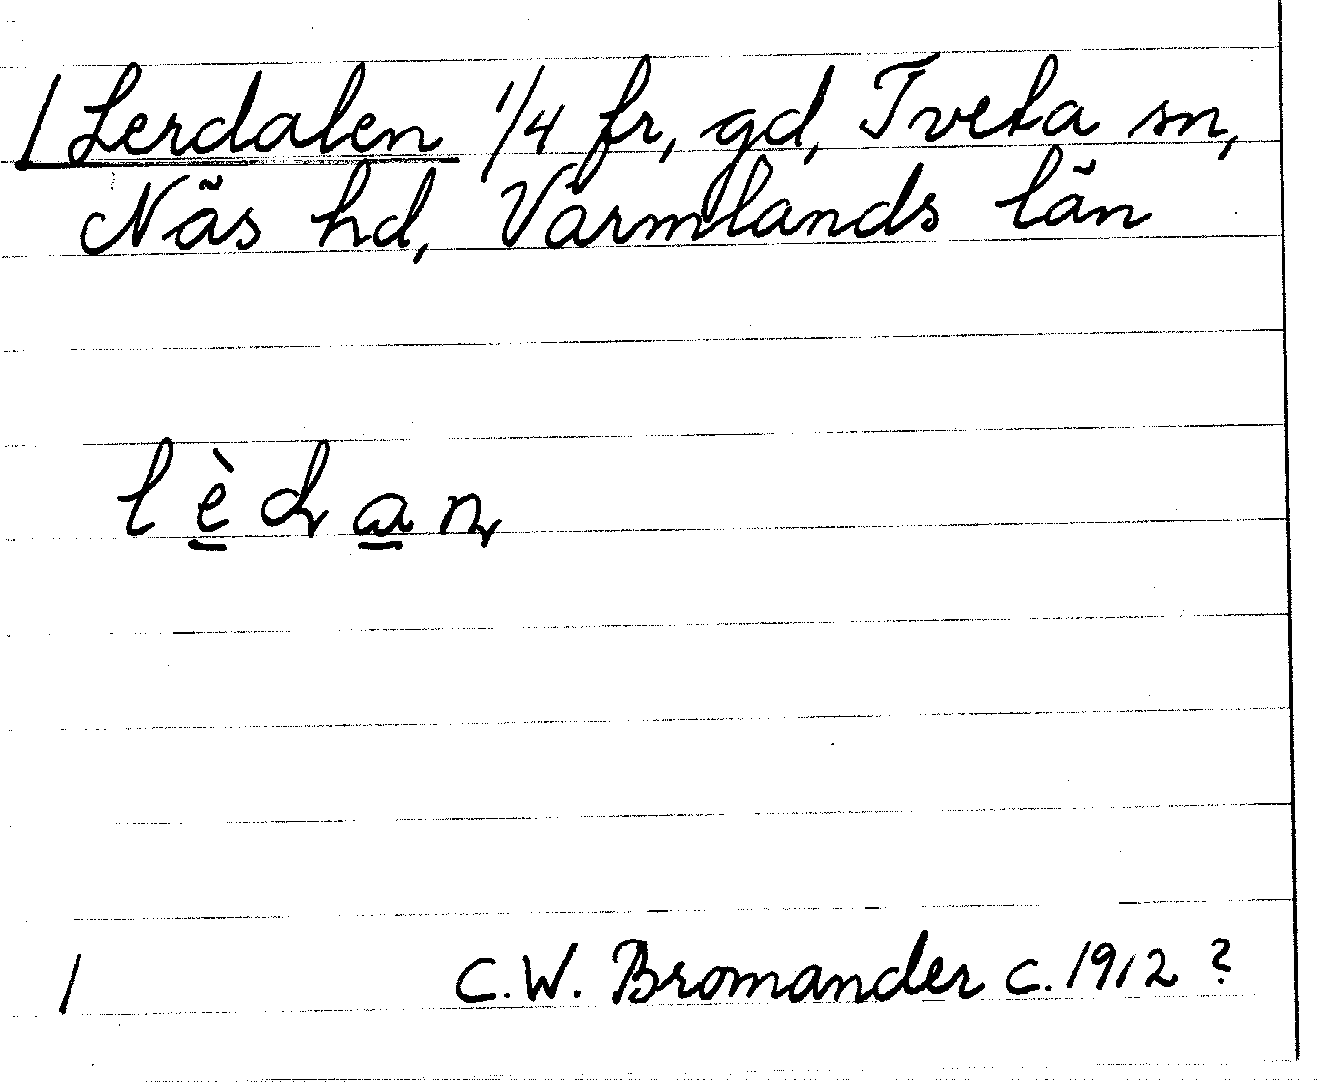 Lerdalen 1/4 fr, gd, Tveta sn,
Näs hd, Värmlands län
lèdan
/ C.W. Bromander c. 1912 ?